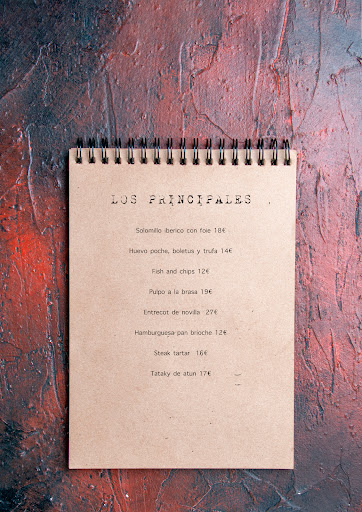 LOS PRINCIPALES .
Solomillo iberico con foie 18€
Huevo poche, boletus y trufa 14€
Fish and chips 12€
Pulpo a la brasa 19€
Entrecot de novilla 27€
Hamburguesa pan brioche 12€
Steak tartar 16€
Tataky de atun 17€